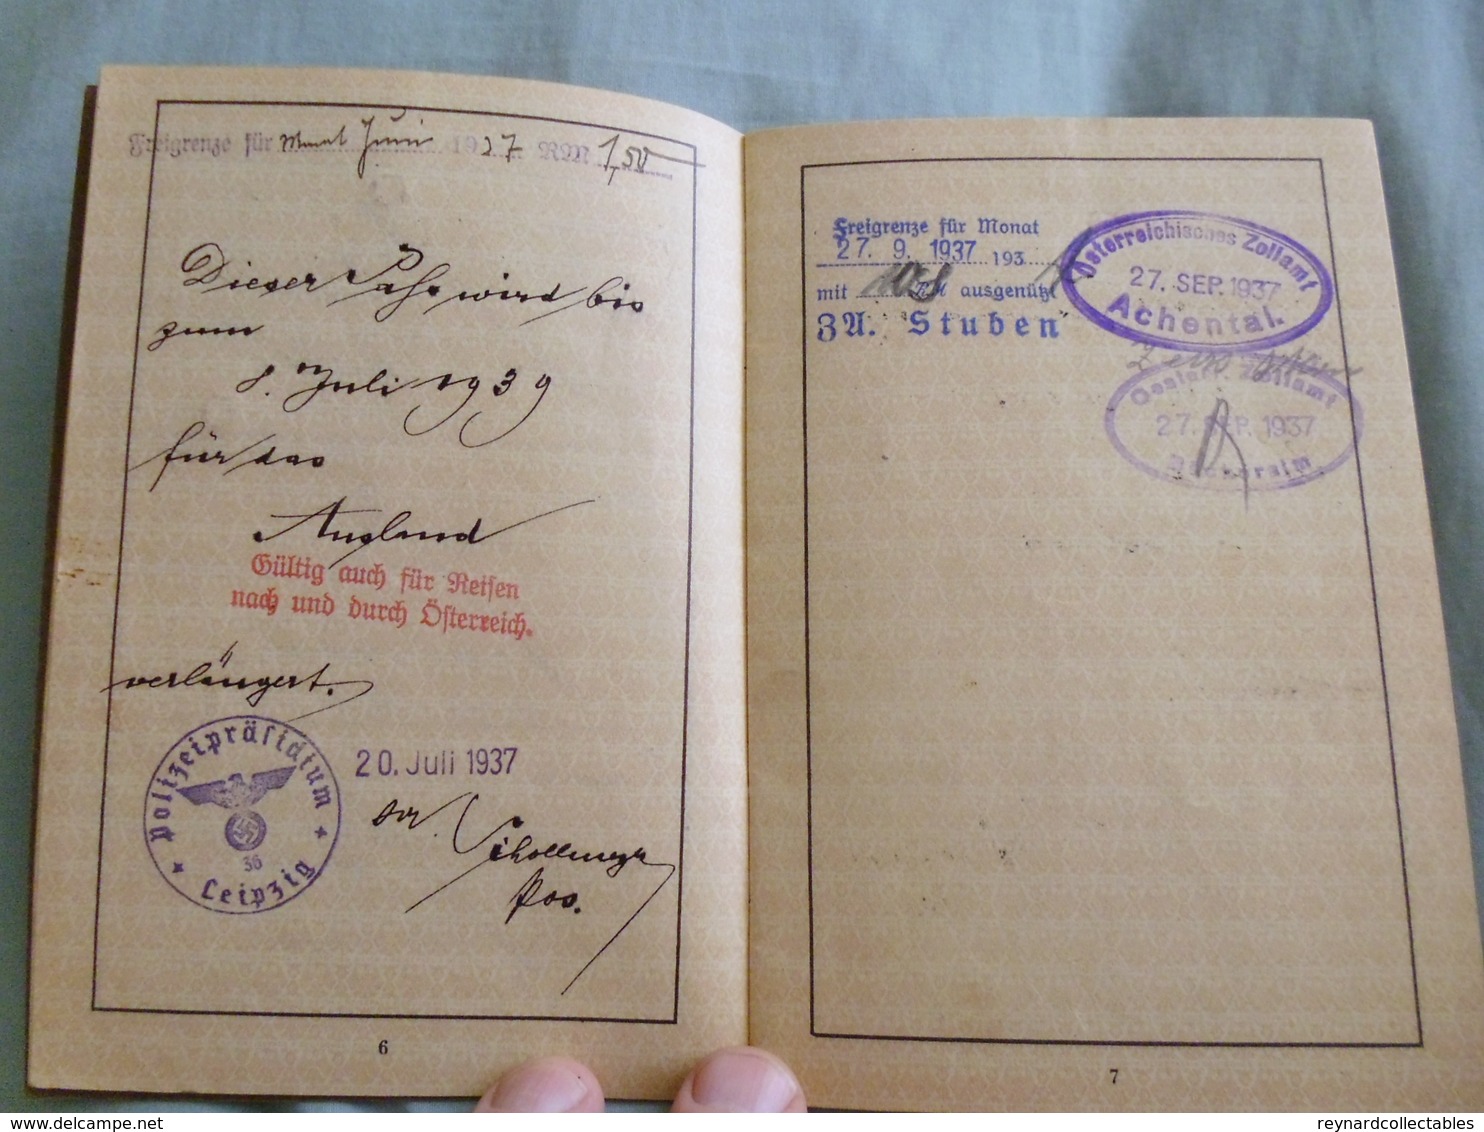 Freigrenze für Monat Juni 1937 RM 1,50
Dieser Pass wird bis
zum
8. Juli 1939
für das
Ausland
Gültig auch für Reisen
nach und durch Österreich.
verlängert.
Polizeipräsidium
36
Leipzig
20. Juli 1937
6
Freigrenze für Monat
27. 9. 1937 193
mit RM ausgenützt
ZA. Stuben
Österreichisches Zollamt
27. SEP. 1937
Achental.
Zollamt
27. SEP. 1937
7
www.delcampe.net
reynardcollectables